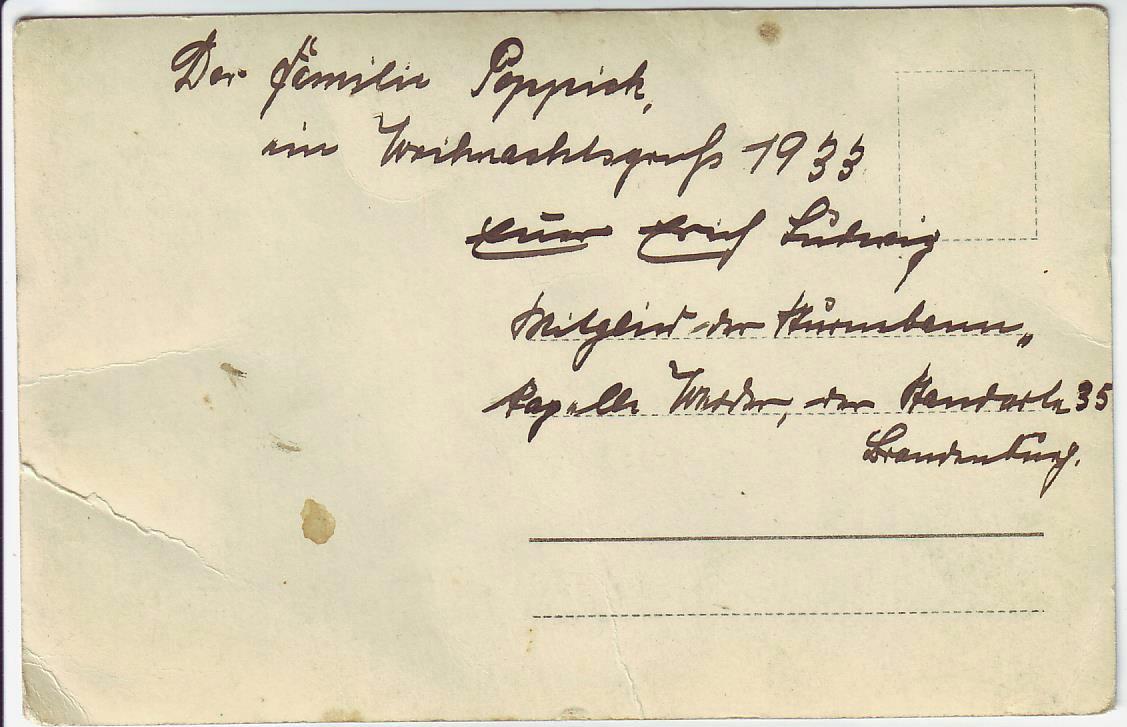 Der Familie Poppick,
ein Weihnachtsgruß 1933
Euer Erich Ludwig
Mitglied der Sturmbann„
kapelle Werder, der Standarte 35
Brandenburg.